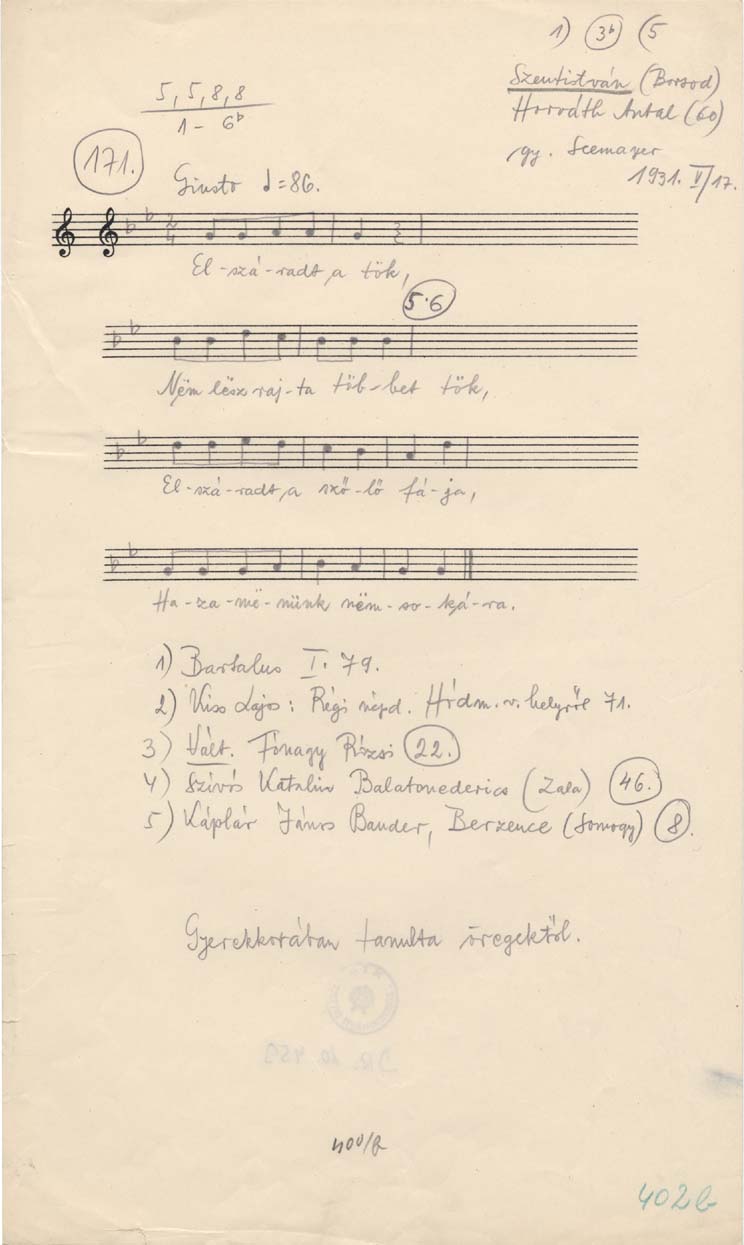 1) 3b (5
5, 5, 8, 8
1 - 6b
Szentistván (Borsod)
Horváth Antal (60)
gy. Seemayer
1931. V/17.
171.
Giusto = 86.
El-szá-radt a tök,
5.6
Nëm lësz raj-ta töb-bet tök,
El-szá-radt a sző-lő fá-ja,
Ha-za-më-nünk nëm-so-ká-ra.
1) Bartalus I. 79.
2) Kiss Lajos: Régi népd. Hódm. v. helyről 71.
3) Vált. Fónagy Rózsi 22.
4) Szívós Katalin Balatonederics (Zala) 46.
5) Káplár János Bander, Berzence (Somogy) 8.
Gyerekkorában tanulta öregektől.
400/b
402b